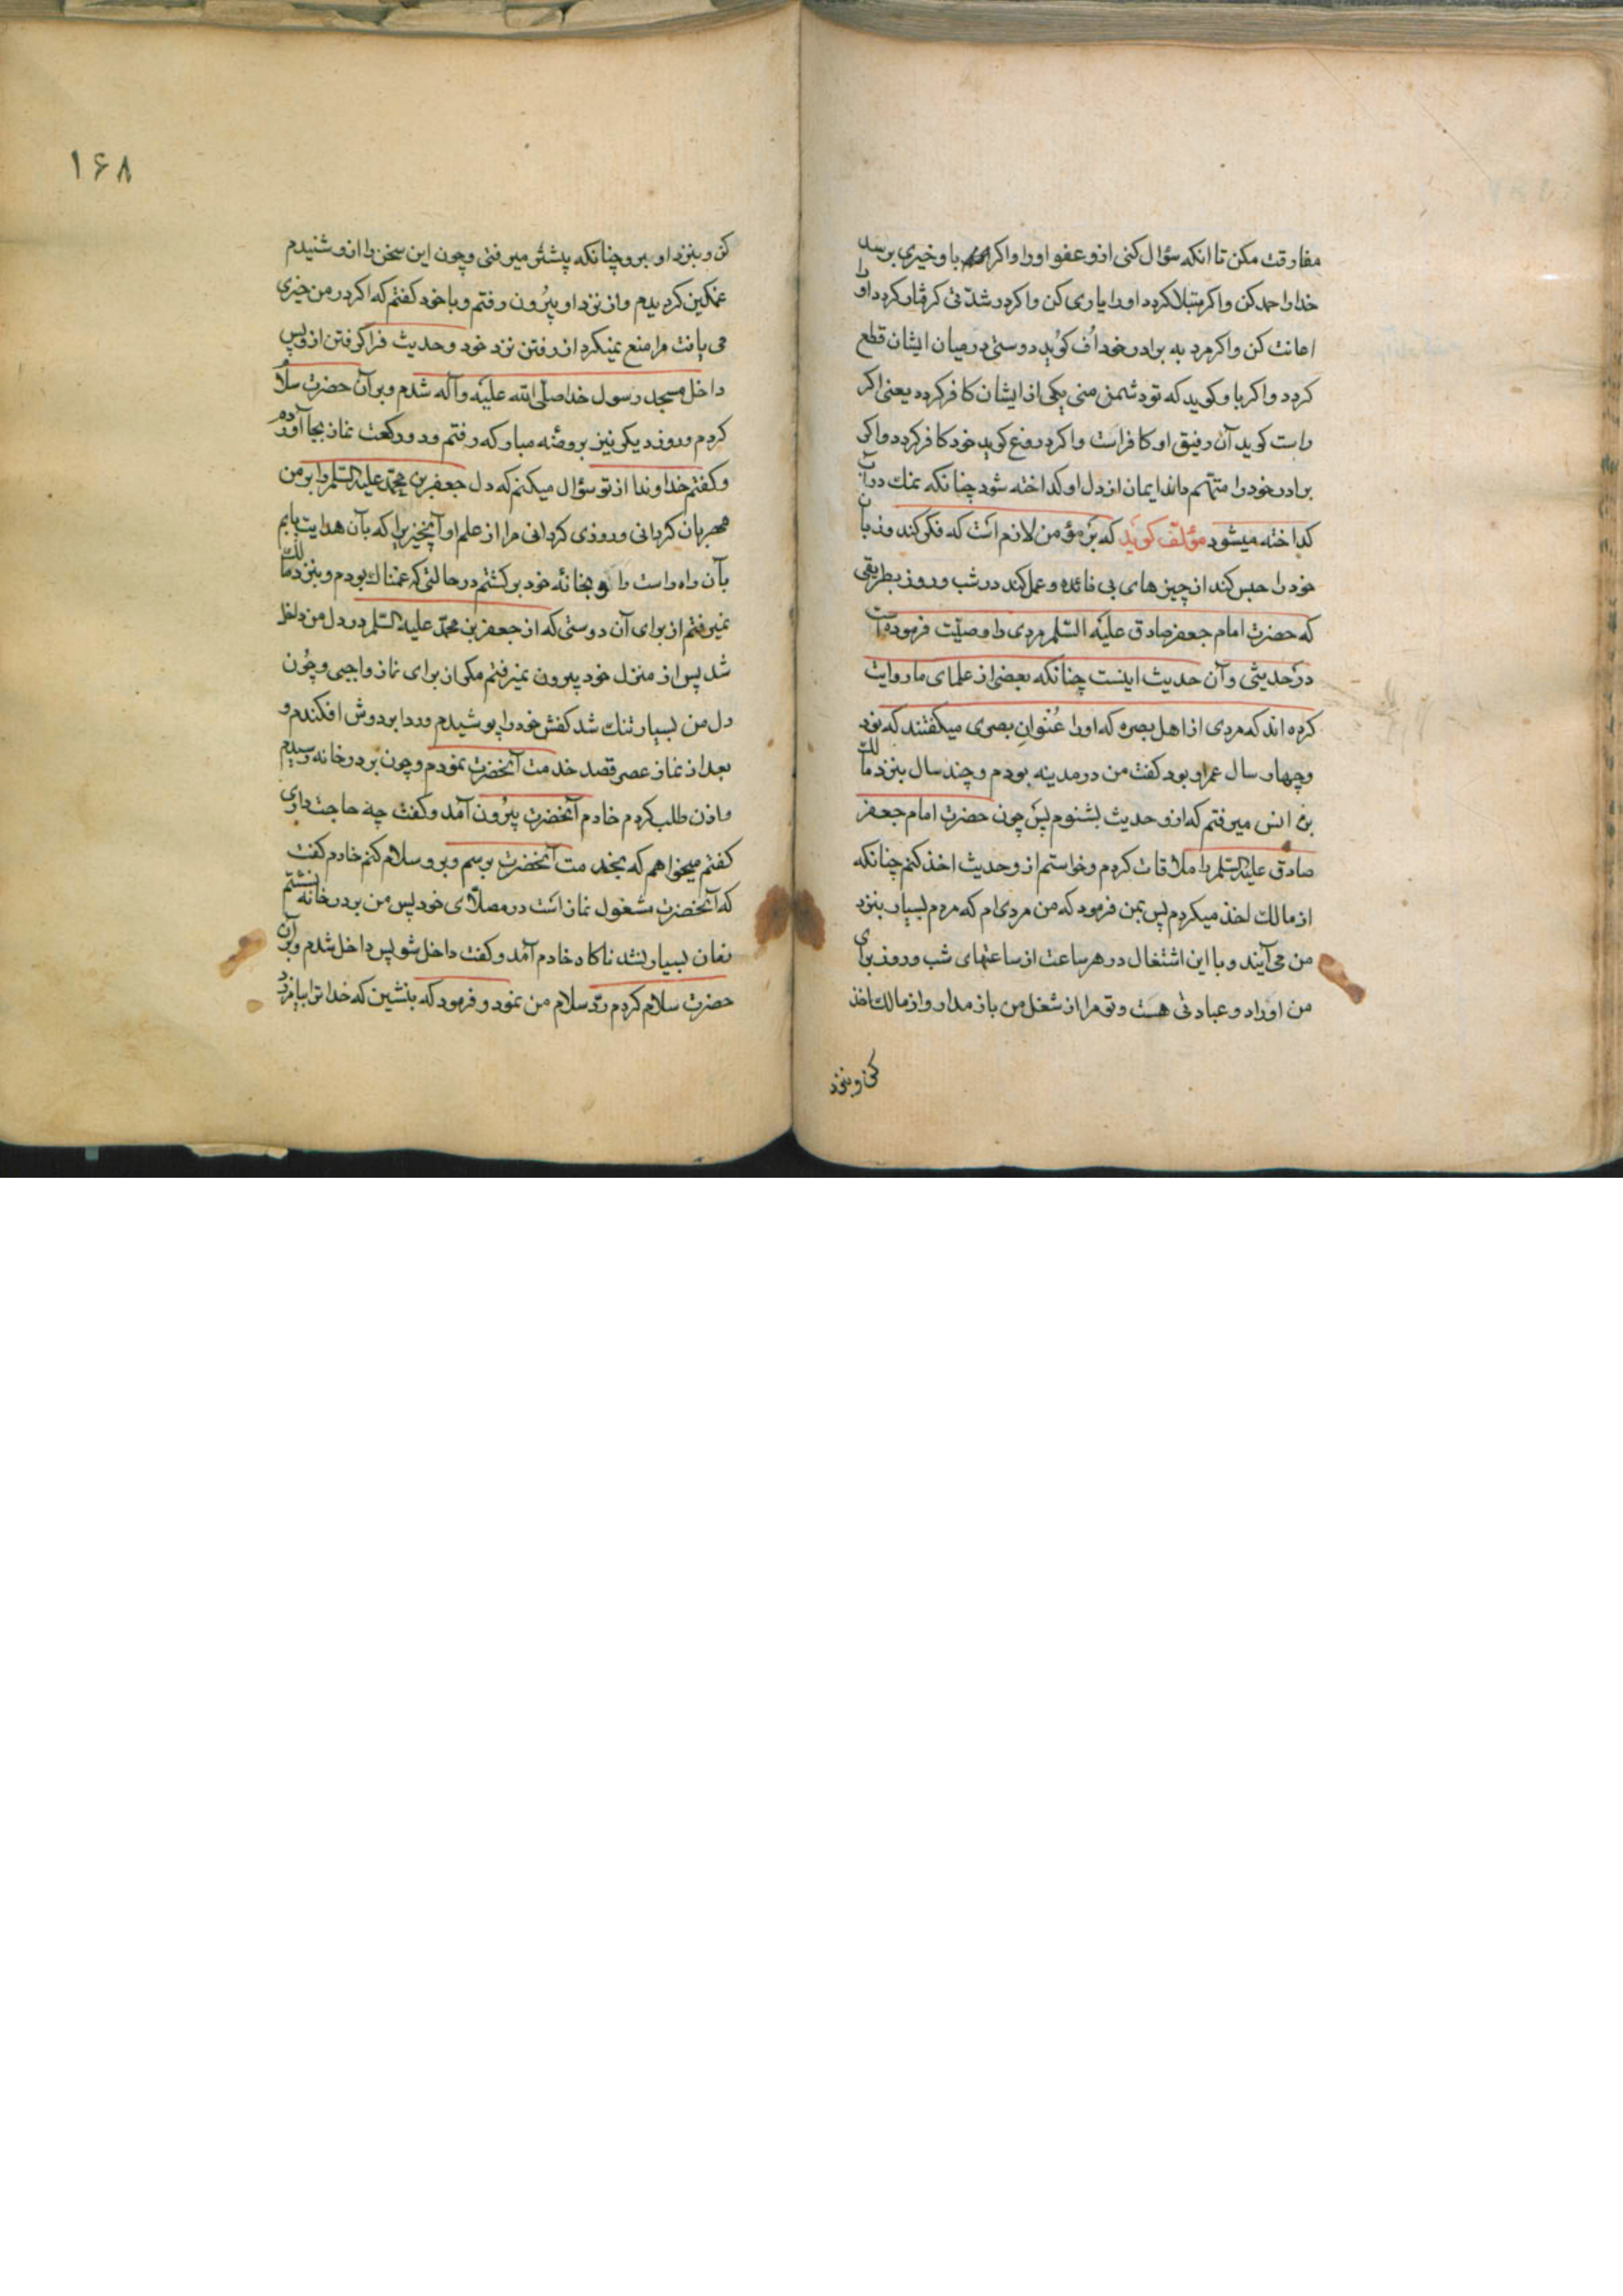 مفارقت مکن تا انکه سؤال کنی ازو عفو اورا و اکر باو خیری برسد
خدا را حمد کن و اکر مبتلا کردد اورا یاری کن و اکر در شدّتی کرفتار کردد او را
اعانت کن و اکر مرد به برادر خود اُف کوید دوستی در میان ایشان قطع
کردد و اکر باو کوید که تو دشمن منی یکی از ایشان کافر کردد یعنی اکر
راست کوید آن رفیق او کافر است و اکر دروغ کوید خود کافر کردد و اکر
برادر خود را متهم داند ایمان از دل او کداخته شود چنانکه نمك در آب
کداخته میشود مؤلف کوید که بر مؤمن لازم است که فکر کند و زبان
خود را حبس کند از چیزهای بی فائده و عمل کند در شب و روز بطریقی
که حضرت امام جعفر صادق علیه السّلم مردی را وصیّت فرموده است
در حدیثی و آن حدیث اینست چنانکه بعضی از علمای ما روایت
کرده اند که مردی از اهل بصره که اورا عُنوانِ بصری میکفتند که نود
و چهار سال عمر او بود کفت من در مدینه بودم و چند سال بنزد مالك
بن انس میرفتم که ازو حدیث بشنوم پس چون حضرت امام جعفر
صادق علیه السّلم را ملاقات کردم و خواستم ازو حدیث اخذ کنم چنانکه
از مالك اخذ میکردم پس بمن فرمود که من مردی ام که مردم بسیار بنزد
من می آیند و با این اشتغال در هر ساعت از ساعتهای شب و روز برای
من اوراد و عبادتی هست و تو مرا از شغل من باز مدار و از مالك اخذ
کن و بنزد
۱۶۸
کن و بنزد او برو چنانکه پیشتر میرفتی و چون این سخن را ازو شنیدم
غمکین کردیدم و از نزد او بیرون رفتم و با خود کفتم که اکر در من خیری
می یافت مرا منع نمیکرد از رفتن نزد خود و حدیث فراکرفتن ازو پس
داخل مسجد رسول خدا صلّی الله علیه و آله شدم و بر آن حضرت سلام
کردم و روز دیکر نیز بروضه مبارکه رفتم و دو رکعت نماز بجا آورده
و کفتم خداوندا از تو سؤال میکنم که دل جعفر بن محمّد علیه السّلم را بر من
مهربان کردانی و روزی کردانی مرا از علم او آنچیز را که بآن هدایت یابم
بآن راه راست را و بخانهٔ خود برکشتم در حالتی که غمناك بودم و بنزد مالك
نمیرفتم از برای آن دوستی که از جعفر بن محمّد علیه السّلم در دل من داخل
شد پس از منزل خود بیرون نمیرفتم مکر از برای نماز واجبی و چون
دل من بسیار تنك شد کفش خود را پوشیدم و ردا بر دوش افکندم و
بعد از نماز عصر قصد خدمت آنحضرت نمودم و چون بر در خانه رسیدم
و اذن طلب کردم خادم آنحضرت بیرون آمد و کفت چه حاجت داری
کفتم میخواهم که بخدمت آنحضرت برسم و برو سلام کنم خادم کفت
که آنحضرت مشغول نماز است در مصلّای خود پس من بر در خانه نشستم
زمان بسیار نشد ناکاه خادم آمد و کفت داخل شو پس داخل شدم و بر آن
حضرت سلام کردم ردّ سلام من نمود و فرمود که بنشین که خدا ترا بیامرزد